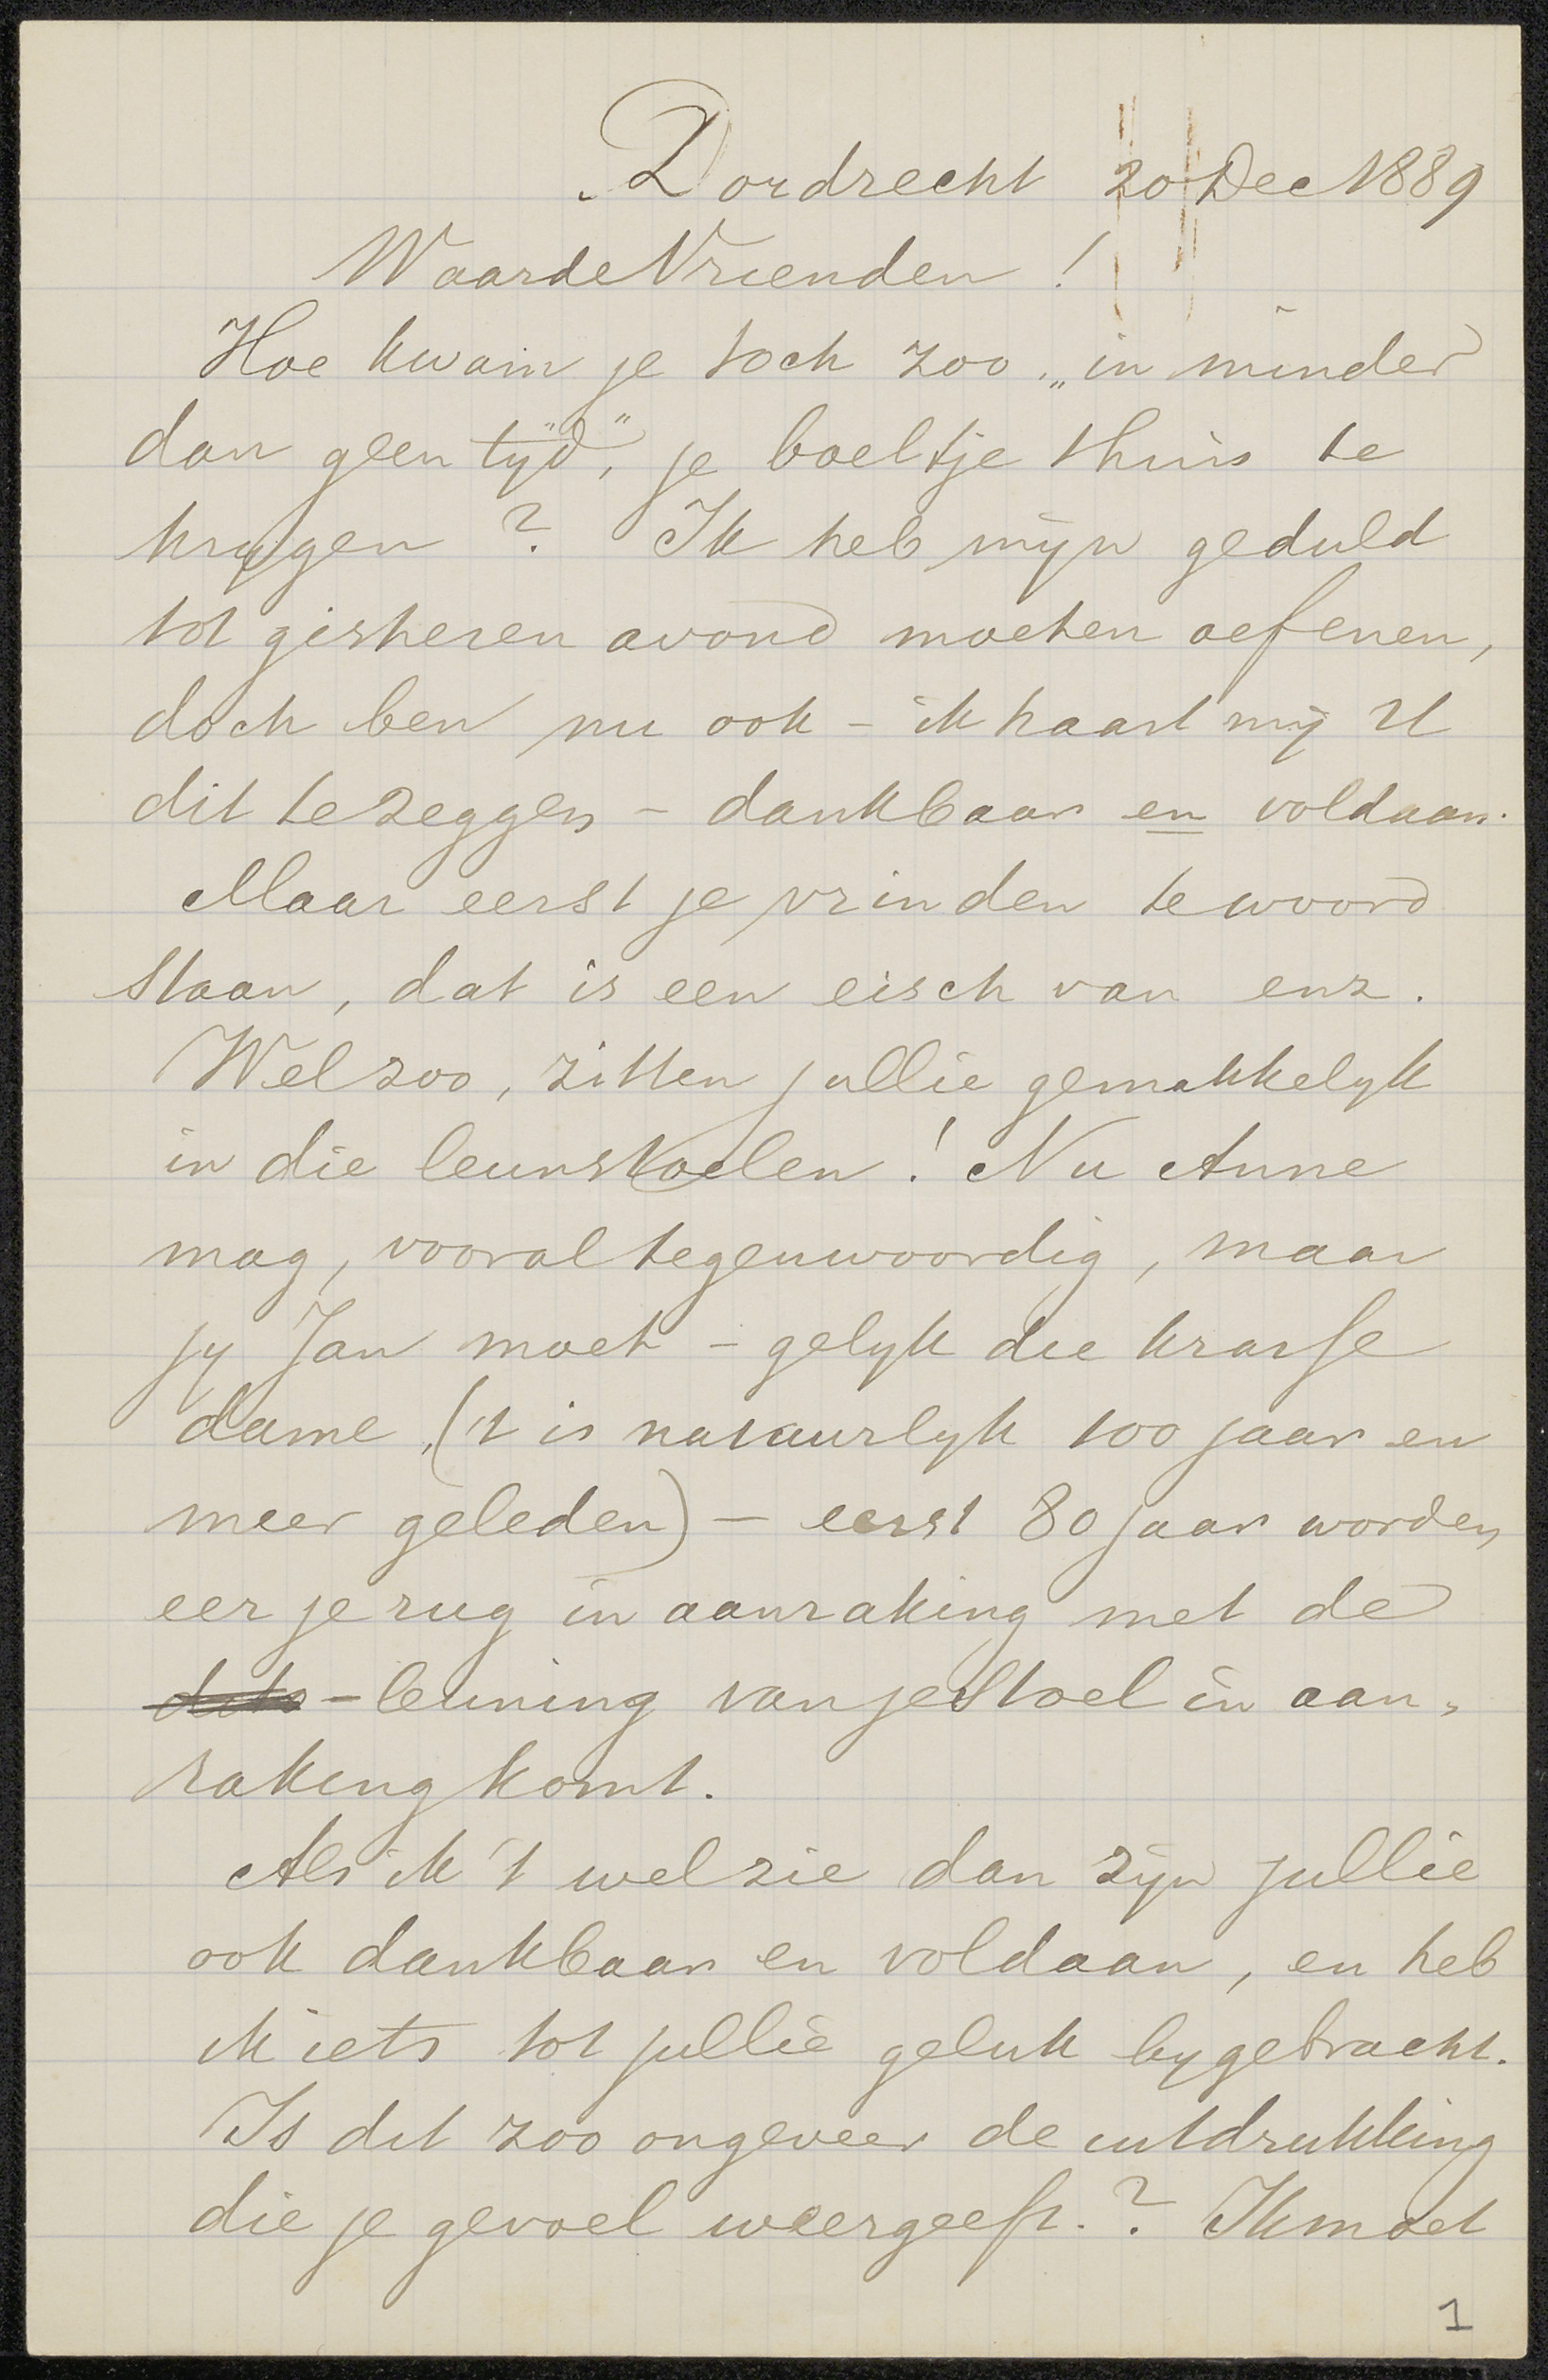 Dordrecht 20 Dec 1889
Waarde Vrienden !
Hoe kwam je toch zoo „in minder
dan geen tijd", je boeltje thuis te
krygen ? Ik heb mijn geduld
tot gisteren avond moeten oefenen,
doch ben nu ook – ik haast mij U
dit te zeggen – dankbaar en voldaan.
Maar eerst je vrinden te woord
staan, dat is een eisch van enz.
Wel zoo, zitten jullie gemakkelyk
in die leunstoelen ! Nu Anne
mag, vooral tegenwoordig, maar
jy Jan moet – gelyk die krasse
dame, ('t is natuurlyk 100 jaar en
meer geleden) – eerst 80 jaar worden
eer je rug in aanraking met de
- leuning van je stoel in aan-
raking komt.
Als ik 't wel zie dan zijn jullie
ook dankbaar en voldaan, en heb
ik iets tot jullie geluk bygebracht.
Is dit zoo ongeveer de uitdrukking
die je gevoel weergeeft. ? Ik moet
1